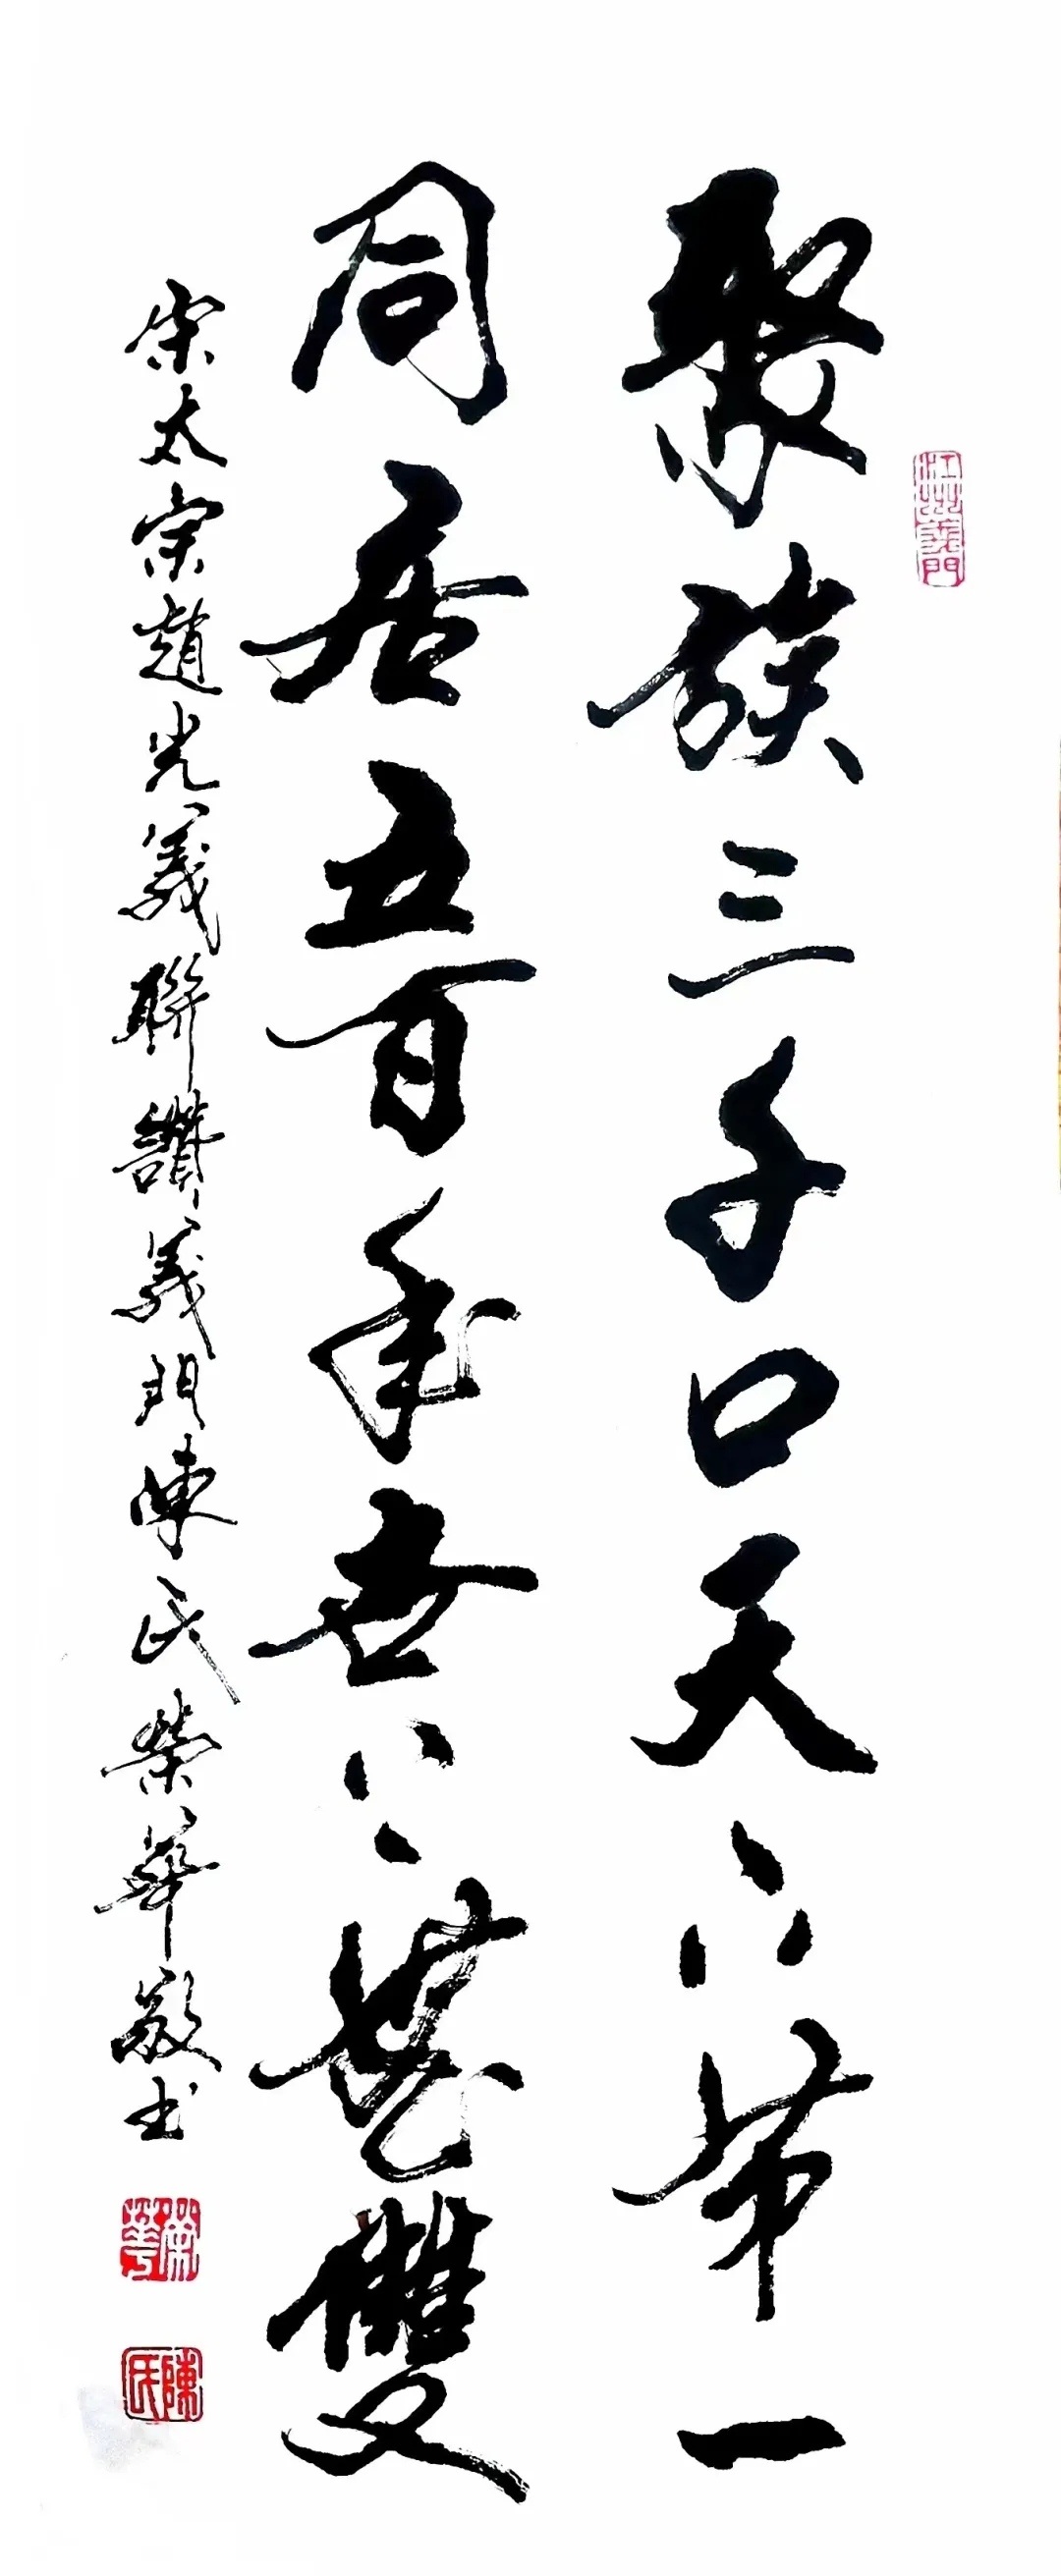 江州義門
聚族三千口天下第一
同居五百年世上無雙
宋太宗趙光義聯讚義門陳氏榮華敬书
榮華
陳氏